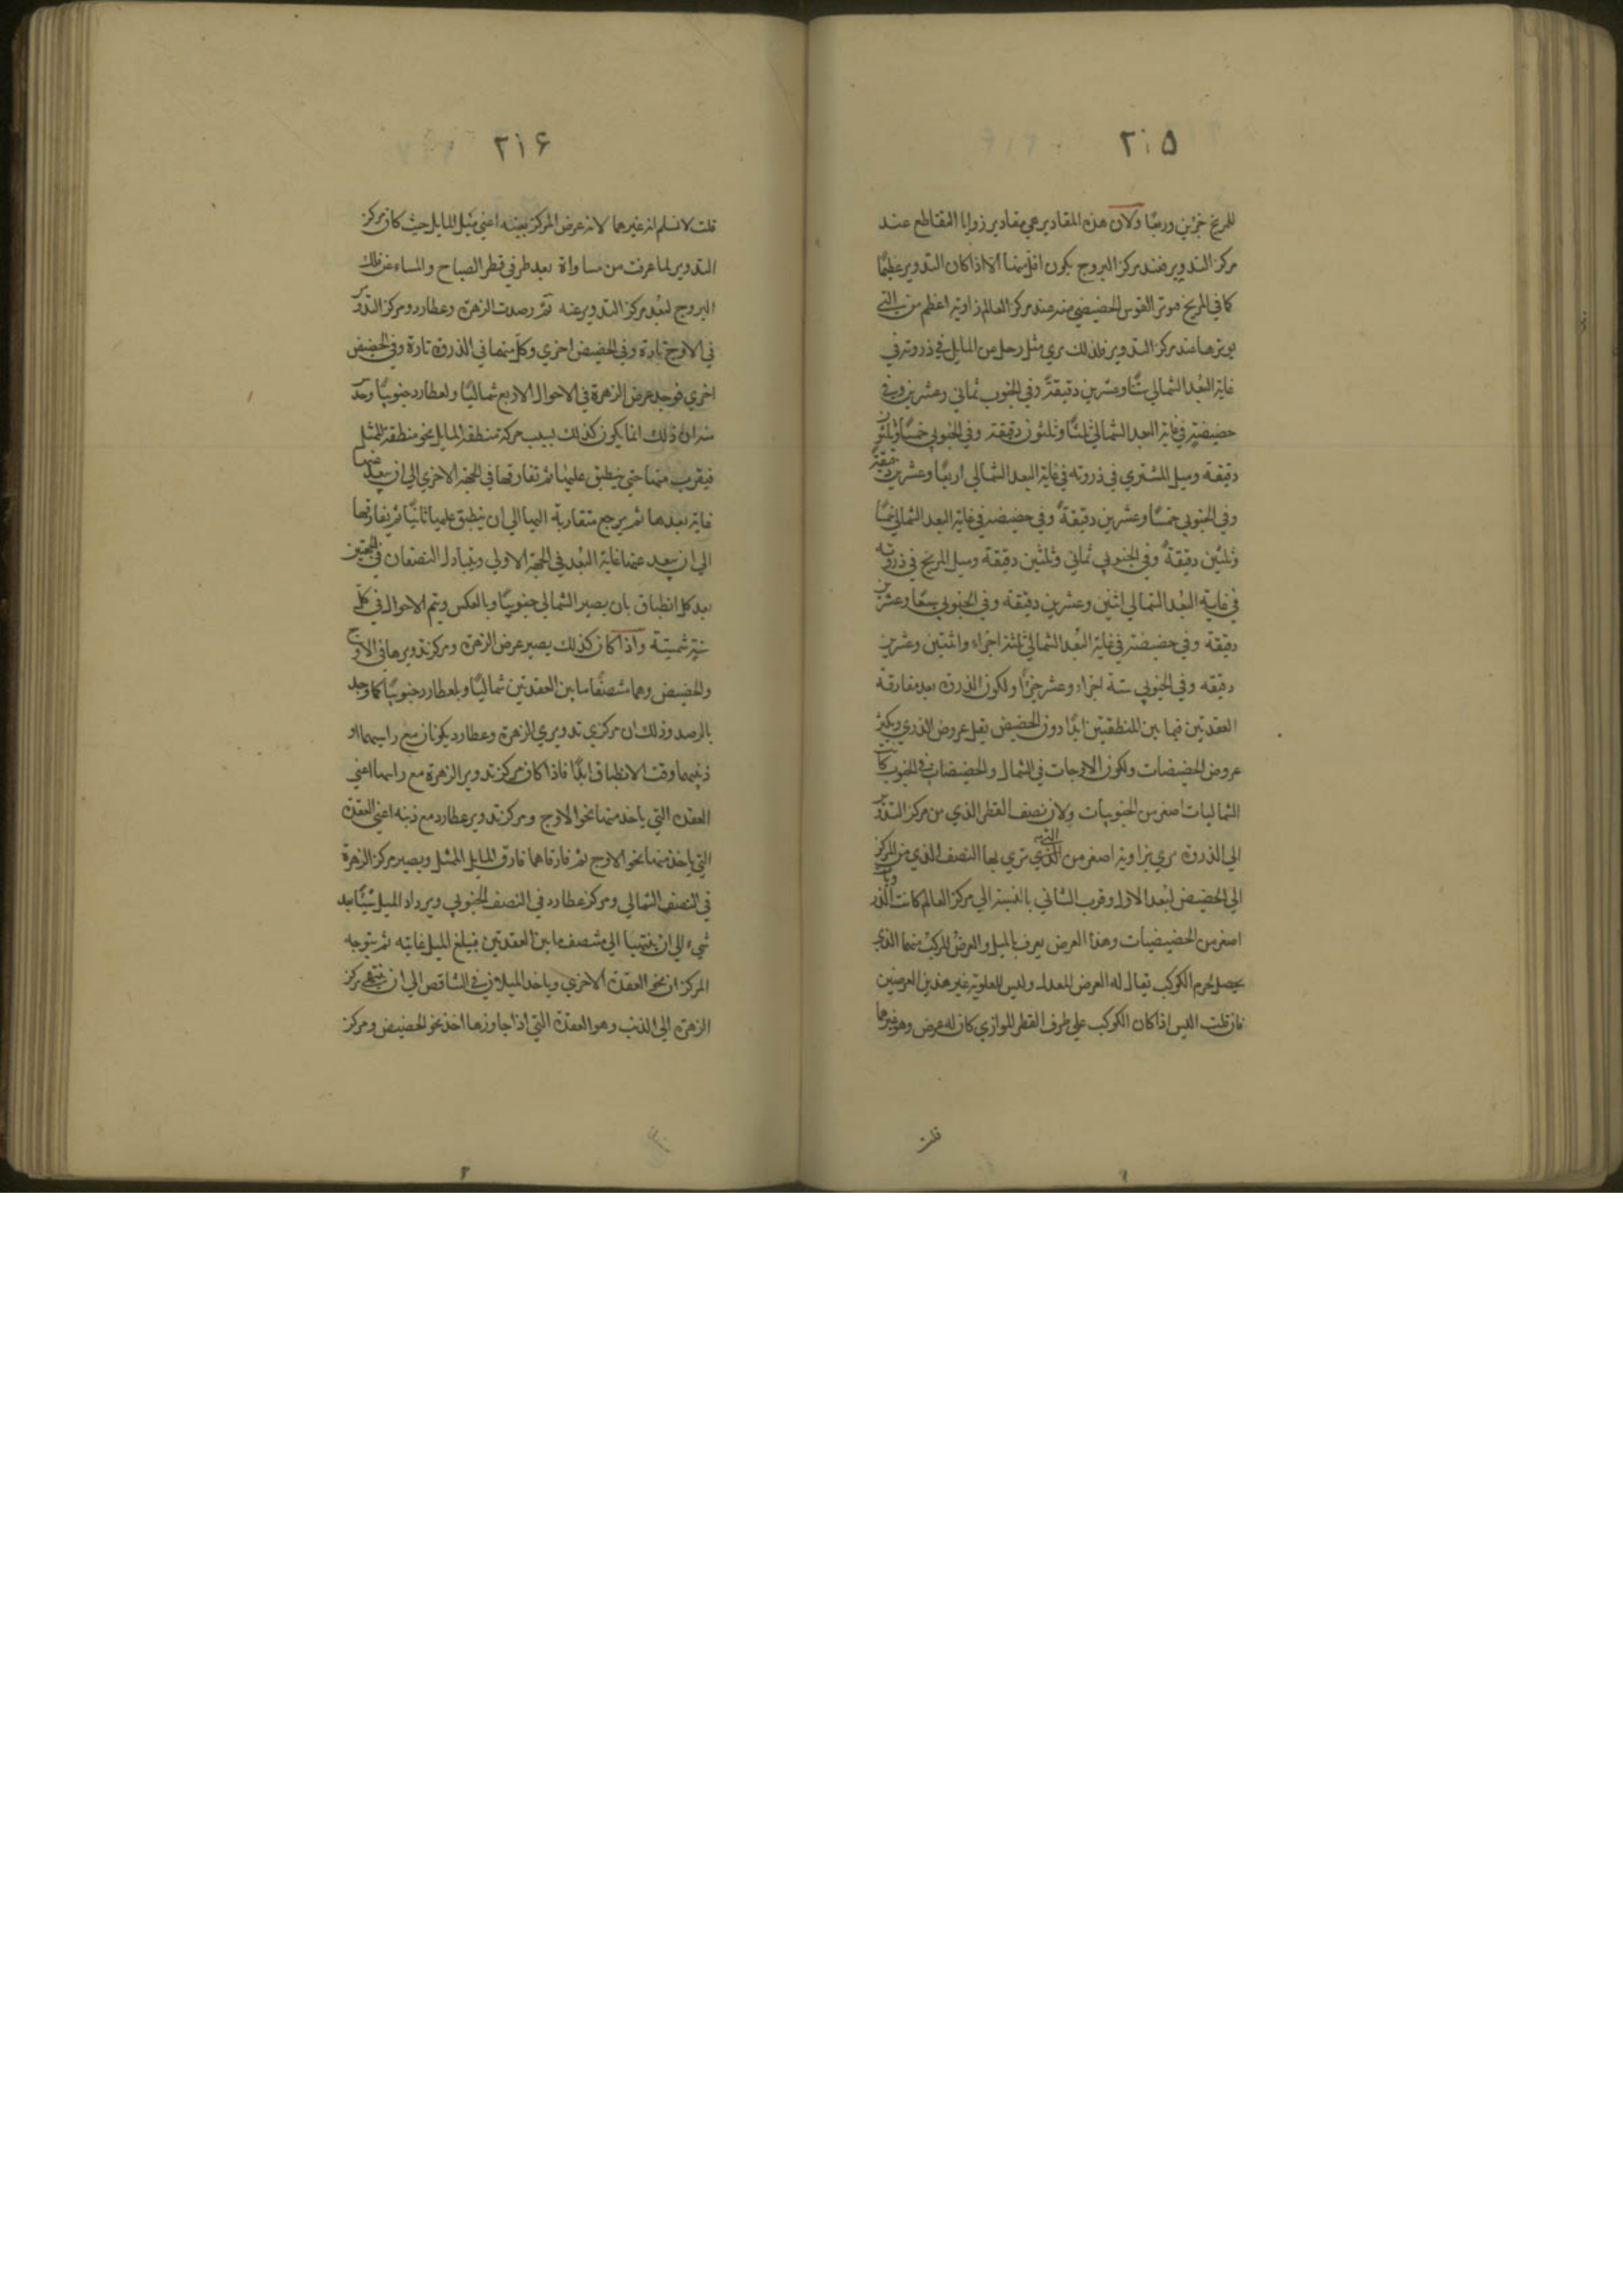 ٢١٥
للمريخ جزئين وربعًا ولان هذه المقادير هي مقادير زوايا التقاطع عند
مركز التدوير فعند مركز البروج يكون اقل منها الا اذا كان التدوير عظيمًا
كما في المريخ فوتر القوس الحضيضي منه عند مركز العالم زاوية اعظم من التي
يوترها عند مركز التدوير فلذلك يري مثل زحل من المايل في ذروته في
غاية البعد الشمالي ستًا وعشرين دقيقةً وفي الجنوب ثماني وعشرين وفي
حضيضه في غاية البعد الشمالي ثلثًا وثلثون دقيقة وفي الجنوبي خمسًا وثلثون
دقيقة وميل المشتري في ذروته في غاية البعد الشمالي اربعًا وعشرين دقيقةً
وفي الجنوبي خمسًا وعشرين دقيقةً وفي حضيضه في غاية البعد الشمالي خمسًا
وثلثين دقيقةً وفي الجنوبي ثماني وثلثين دقيقة وميل المريخ في ذروته
في غاية البعد الشمالي اثنين وعشرين دقيقة وفي الجنوبي سبعًا وعشرين
دقيقة وفي حضيضه في غاية البعد الشمالي ثلثة اجزاء واثنتين وعشرين
دقيقه وفي الجنوبي ستة اجزاء وعشر جزًا ولكون الذروة بعد مفارقة
العقدتين فيما بين المنطقتين ابدًا دون الحضيض يقل عروض الذري ويكثر
عروض الحضيضات ولكون الاوجات في الشمال والحضيضات في الجنوب كانت
الشماليات اصغر من الجنوبيات ولان نصف القطر الذي من مركز التدوير
الي الذروة يري بزاوية اصغر من التي تري بها النصف الذي من المركز
الي الحضيض لبعد الاول وقرب الثاني بالنسبة الي مركز العالم كانت الذرويات
اصغر من الحضيضيات وهذا العرض يعرف بالميل والعرض المركب منهما الذي
يحصل لجرم الكوكب يقال له العرض المعدل وليس للعلوية غير هذين العرضين
فان قلت اليس اذا كان الكوكب علي طرف القطر الموازي كان له عرض وهو غيرهما
قلت
٢١٦
قلت لا نسلم انه غيرهما لانه عرض المركز بعينه اعني ميل المايل حيث كان مركز
التدوير لما عرفت من مساواة بعد طرفي قطر الصباح والمساء عن فلك
البروج لبعد مركز التدوير عنه ثم رصدت الزهرة وعطارد ومركز التدوير
في الاوج تارة وفي الحضيض اخري وكل منهما في الذروة تارة وفي الحضيض
اخري فوجد عرض الزهرة في الاحوال الاربع شماليًا ولعطارد جنوبيًا وحدس
منه ان ذلك انما يكون كذلك بسبب حركة منطقة المايل نحو منطقة الممثل
فيقرب منها حتي ينطبق عليها ثم تفارقها في الجهة الاخري الي ان يبعد عنها
غاية بعدها ثم يرجع متقاربة اليها الي ان ينطبق عليها ثانيًا ثم يفارقها
الي ان يبعد عنها غاية البعد في الجهة الاولي ويتبادل النصفان في الجهتين
بعد كل انطباق بان يصير الشمالي جنوبيًا وبالعكس ويتم الاحوال في كل
سنة شمسية واذا كان كذلك يصير عرض الزهرة ومركز تدويرها في الاوج
والحضيض وهما منتصفا ما بين العقدتين شماليًا ولعطارد جنوبيًا كما وجد
بالرصد وذلك ان مركزي تدويري الزهرة وعطارد يكونان مع راسيهما او
ذنبيهما وقت الانطباق ابدًا فاذا كان مركز تدوير الزهرة مع راسها اعني
العقدة التي ياخذ منها نحو الاوج ومركز تدوير عطارد مع ذنبه اعني العقدة
التي ياخذ منها نحو الاوج ثم فارقاهما فارق المايل الممثل ويصير مركز الزهرة
في النصف الشمالي ومركز عطارد في النصف الجنوبي ويزداد الميل شيئًا بعد
شيء الي ان ينتهيا الي منتصف ما بين العقدتين فيبلغ الميل غايته ثم يتوجه
المركزان نحو العقدة الاخري وياخذ الميلان في التناقص الي ان ينتهي مركز
الزهرة الي الذنب وهو العقدة التي اذا جاوزها اخذ نحو الحضيض ومركز